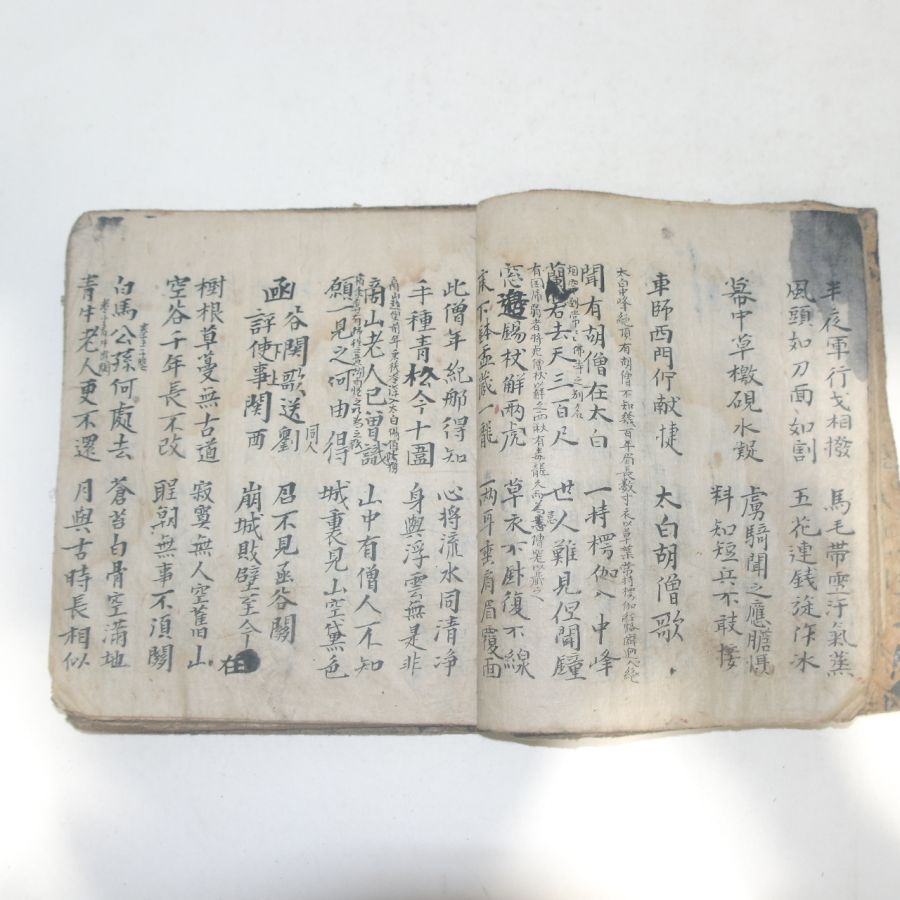 半夜軍行戈相撥 馬毛帶雪汗氣蒸
風頭如刀面如割 五花連錢旋作冰
幕中草檄硯水凝 虜騎聞之應膽慴
料知短兵不敢接
車師西門佇献捷 太白胡僧歌
太白中峰絶頂有胡僧不知幾百年眉長数寸
聞有胡僧在太白 一持楞伽入中峰
蘭若去天三百尺 世人難見但聞鍾
窓邉錫杖解两虎 草衣不
床下鉢盂蔵一龍 两耳垂肩眉覆面
此僧年紀那得知 心將流水同清净
手種青松今十圍 身與浮雲無是非
商山老人已曽識 山中有僧人不知
願一見之何由得 城裏見山空黛色
函谷関歌送劉 君不見函谷關
評使事関西 崩城敗壁至今在
同人
樹根草蔓無古道 寂寞無人空舊山
空谷千年長不改 聖朝無事不須關
白馬公孫何處去 蒼苔白骨空滿地
青牛老人更不還 月與古時長相似